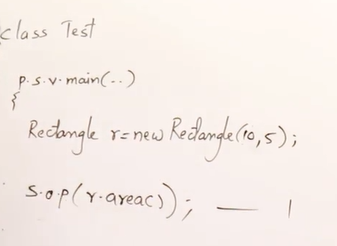 class Test
p.s.v.main(..)
{
Rectangle r=new Rectangle(10,5);
s.o.p(r.area()); — 1